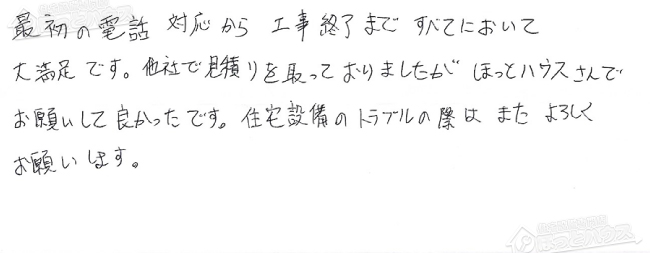 最初の電話 対応から 工事終了まで すべてにおいて
大満足です。他社で見積りを取っておりましたが ほっとハウスさんで
お願いして良かったです。住宅設備のトラブルの際は また よろしく
お願いします。
ほっとハウス